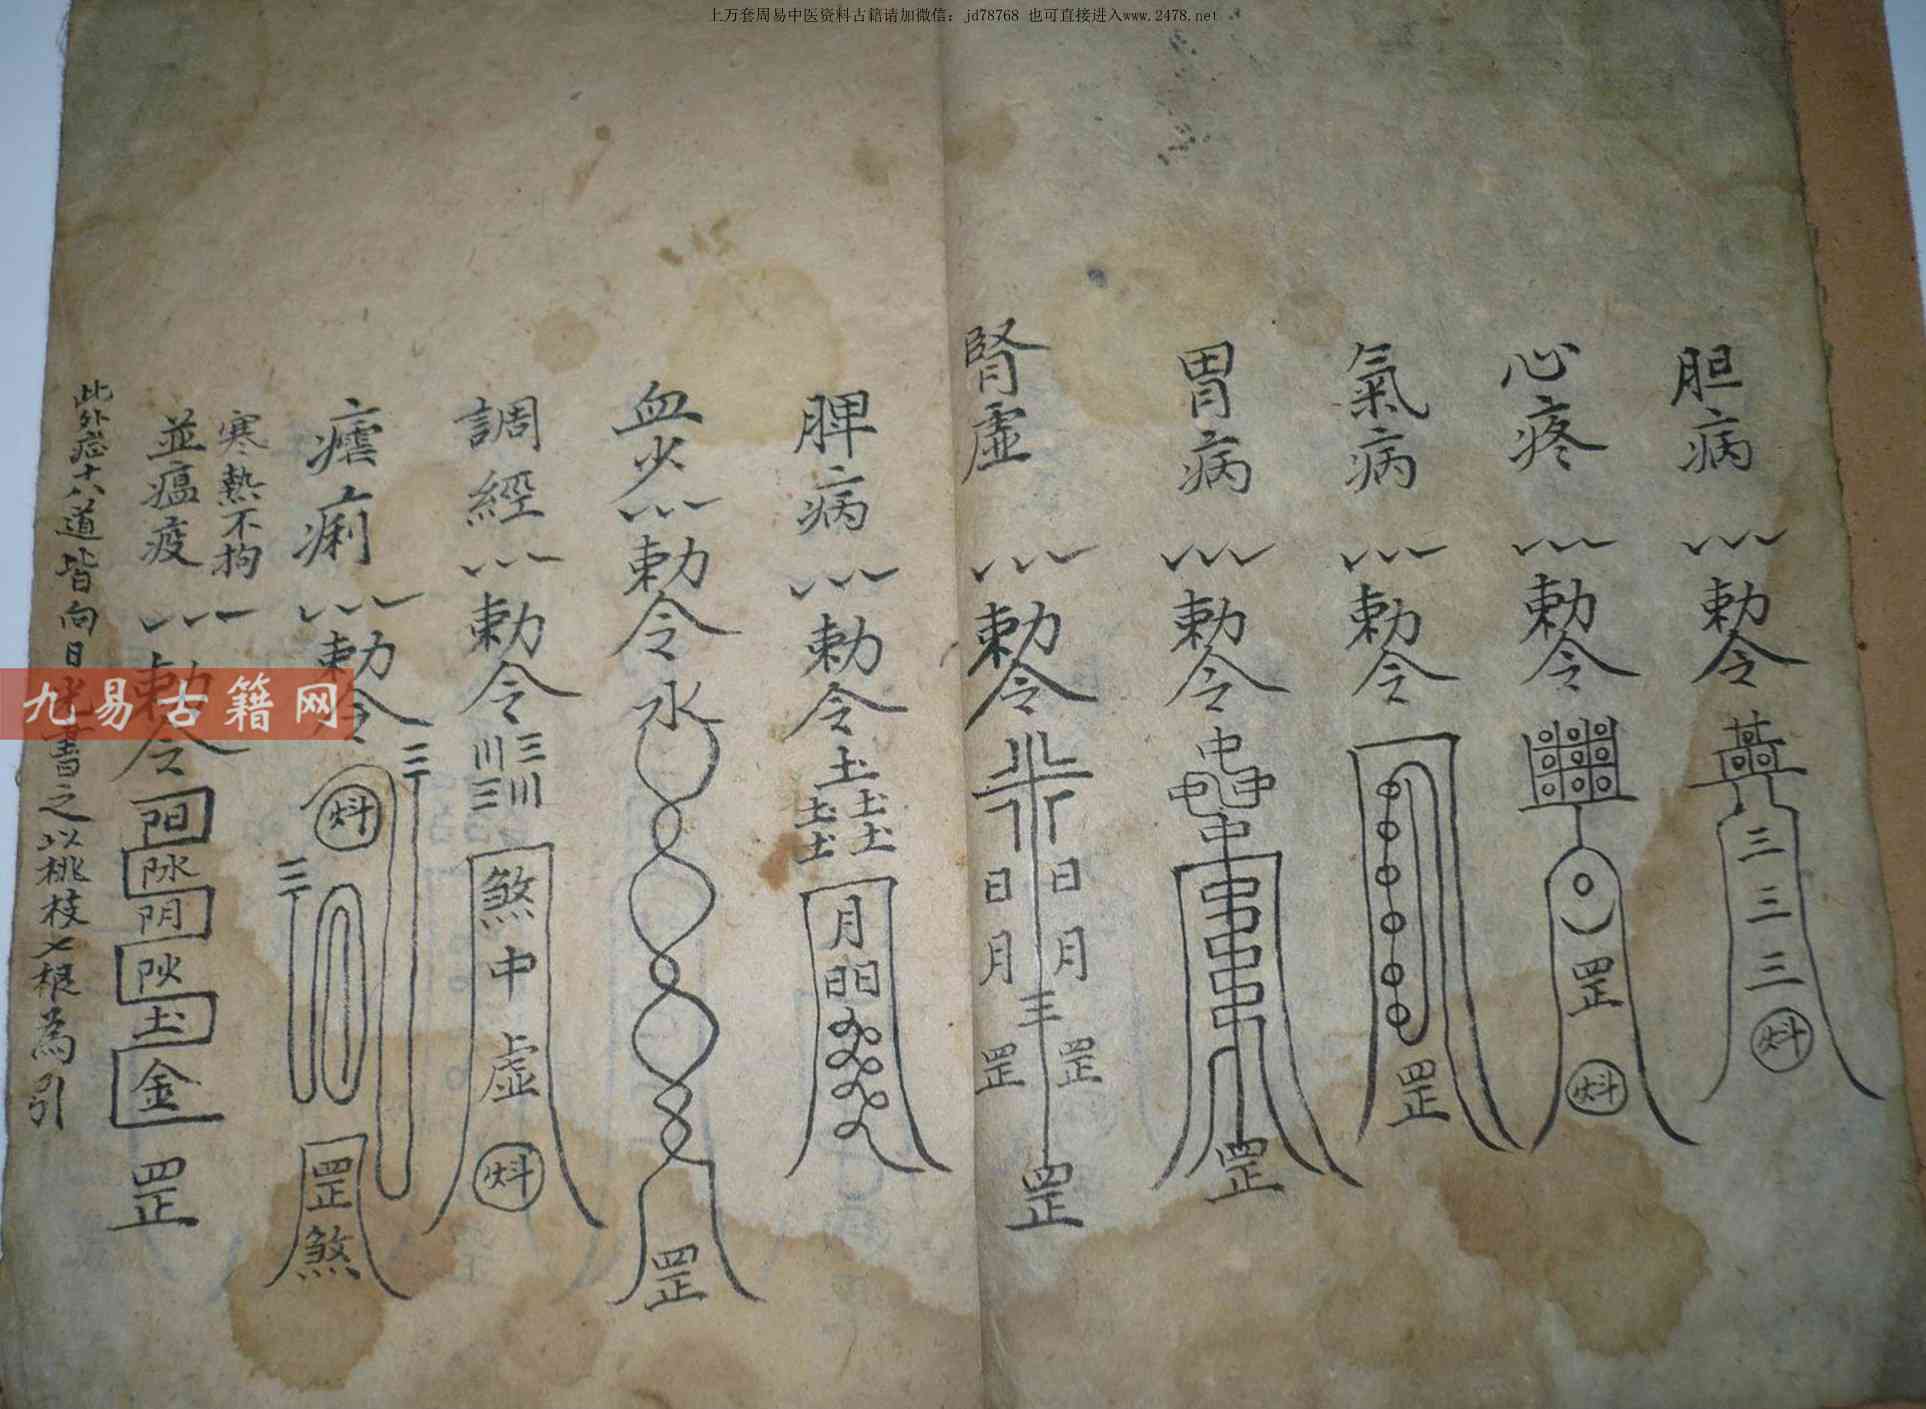 上万套周易中医资料古籍请加微信：jd78768 也可直接进入www.2478.net
胆病 勅令 三三三 炓
心疼 勅令 罡 炓
氣病 勅令 罡
胃病 勅令 中 中 中 中 罡
腎虛 勅令 日 日 月 月 罡 罡 罡
脾病 勅令 土 土 土 土 土 月 日 日
血火 勅令 水 罡
調經 勅令 煞中虛 炓
瘧痢 勅令 炓 罡煞
寒熱不拘
並瘟疫 勅令 土 金 罡
此外症十八道皆向日光書之以桃枝七根為引
九易古籍网